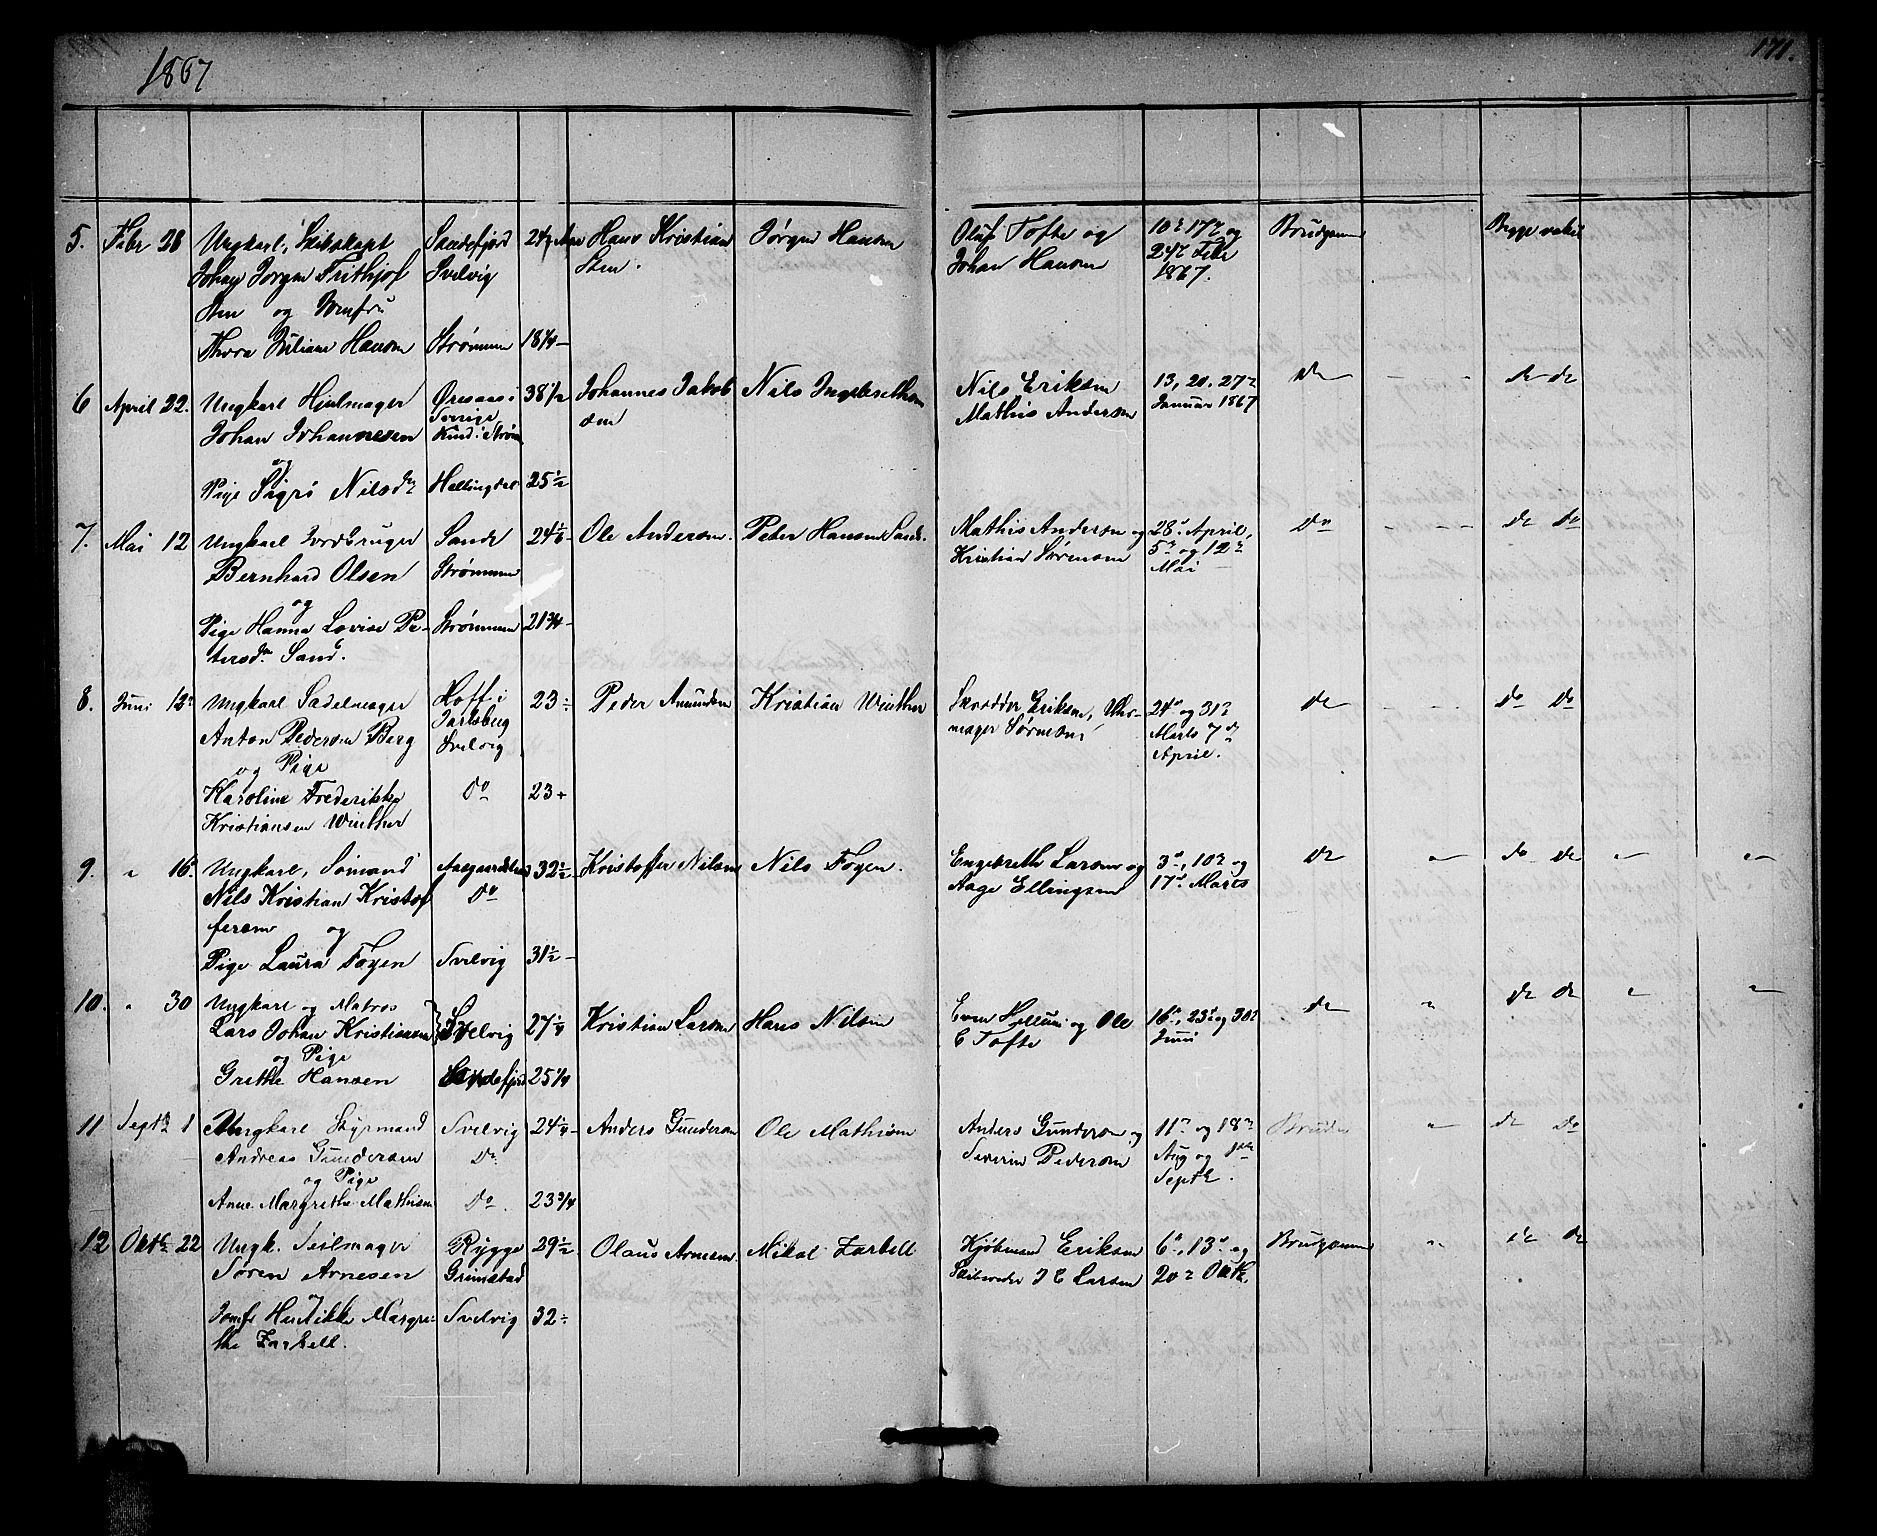 1867
171.
5. Febr 28 Ungkarl, Skibskapt Sandefjord 24 Hans Kristian Jørgen Hansen Oluf Tofte og 10de 17de og Brudgommen Begge vakc
Johan Jørgen Frithjof Svelvig Sten. Johan Hansen 24de Febr
Sten og Jomfru 1867.
Thora Juliane Hansen Strømmen 18¼ –
6 April 22. Ungkarl Hjulmager i 38½ Johannes Jakob Nils Ingebrethsen Nils Eriksen 13, 20. 27de Do – – do do
Johan Johannesen Sverige sen Mathis Andersen Januar 1867
og Kind: Strøm
Pige Sigri Nilsdr Hallingdal 25½
7. Mai 12 Ungkarl Jordbruger Sande 24 Ole Andersen. Peter Hansen Sand. Mathis Andersen og 28de April, Do – – – do do
Bernhard Olsen Strømmen Kristian Sørensen 5de og 12de
og Mai
Pige Hanna Lovise Pe- Strømmen 21¾ –
tersdr Sand.
8. Juni 12 Ungkarl Sadelmager Hoff i 23 Peder Amundsen Kristian Winther Skrædder Eriksen, Uhr- 24de og 31te do – – do do
Anton Pedersen Berg Jarlsberg mager Sørensen Marts 7de
og Pige Svelvig April.
Karoline Frederikke Do 23
Kristiansen Winther
9. " 16. Ungkarl, Sømand Aasgaardstrand 32½ Kristoffer Nilsen Nils Foyen. Engebreth Larsen og 3de, 10de og do " do do " "
Nils Kristian Kristof Do Aage Ellingsen 17de Marts
fersen og
Pige Laura Foyen Svelvig 31½ –
10. " 30 Ungkarl og Matros Svelvig 27¼ Kristian Larsen Hans Nilsen Even Hellum og Ole 16de, 23de og 30te do " do do " "
Lars Johan Kristiansen E Tofte Juni
og Pige
Grethe Hansen Sandefjord 25¼
11 Septbr 1 Ungkarl Styrmand Svelvig 24¼ Anders Gundersen Ole Mathisen Anders Gundersen og 11te og 18de Bruden " do do
Andreas Gundersen Do Severin Pedersen Aug og 1ste
og Pige Septbr.
Anne Margrethe Mathisen Do. 23¾
12 Oktbr 22 Ungk. Seilmager Rygge 29½ Olaus Arnesen. Mikal Zarbell Kjøbmand Eriksen 6te, 13de og Brudgommen " do do
Søren Arnesen Grimstad Skibsreder J E Larsen 20de Oktbr.
og
Jomfr Henrikke Margre- Svelvig 32
the Zarbell.